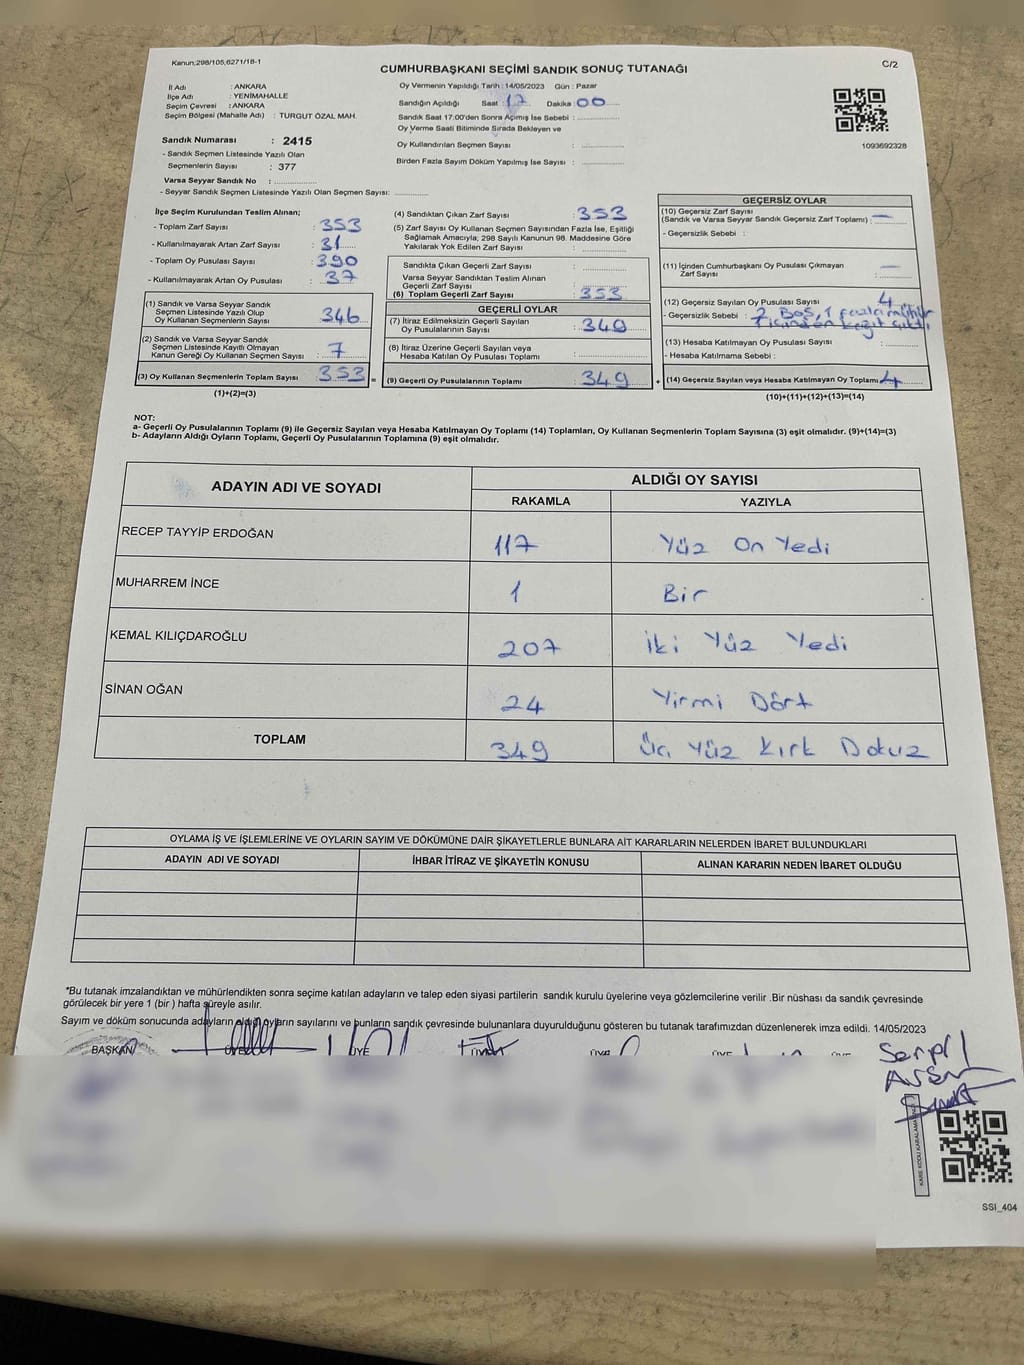 Kanun;298/105,6271/18-1
C/2
CUMHURBAŞKANI SEÇİMİ SANDIK SONUÇ TUTANAĞI
İl Adı : ANKARA
İlçe Adı : YENİMAHALLE
Seçim Çevresi : ANKARA
Seçim Bölgesi (Mahalle Adı) : TURGUT ÖZAL MAH.
Oy Vermenin Yapıldığı Tarih : 14/05/2023 Gün : Pazar
Sandığın Açıldığı Saat : 17 Dakika : 00
Sandık Saat 17.00'den Sonra Açımış İse Sebebi :
Oy Verme Saati Bitiminde Sırada Bekleyen ve
Oy Kullandırılan Seçmen Sayısı :
Birden Fazla Sayım Döküm Yapılmış İse Sayısı :
1093692328
Sandık Numarası : 2415
- Sandık Seçmen Listesinde Yazılı Olan
Seçmenlerin Sayısı : 377
Varsa Seyyar Sandık No :
- Seyyar Sandık Seçmen Listesinde Yazılı Olan Seçmen Sayısı:
İlçe Seçim Kurulundan Teslim Alınan;
- Toplam Zarf Sayısı : 353
- Kullanılmayarak Artan Zarf Sayısı : 31
- Toplam Oy Pusulası Sayısı : 390
- Kullanılmayarak Artan Oy Pusulası : 37
(1) Sandık ve Varsa Seyyar Sandık
Seçmen Listesinde Yazılı Olup
Oy Kullanan Seçmenlerin Sayısı : 346
(2) Sandık ve Varsa Seyyar Sandık
Seçmen Listesinde Kayıtlı Olmayan
Kanun Gereği Oy Kullanan Seçmen Sayısı : 7
(3) Oy Kullanan Seçmenlerin Toplam Sayısı : 353 =
(1)+(2)=(3)
(4) Sandıktan Çıkan Zarf Sayısı : 353
(5) Zarf Sayısı Oy Kullanan Seçmen Sayısından Fazla İse, Eşitliği
Sağlamak Amacıyla; 298 Sayılı Kanunun 98. Maddesine Göre
Yakılarak Yok Edilen Zarf Sayısı :
Sandıkta Çıkan Geçerli Zarf Sayısı :
Varsa Seyyar Sandıktan Teslim Alınan
Geçerli Zarf Sayısı :
(6) Toplam Geçerli Zarf Sayısı : 353
GEÇERLİ OYLAR
(7) İtiraz Edilmeksizin Geçerli Sayılan
Oy Pusulalarının Sayısı : 349
(8) İtiraz Üzerine Geçerli Sayılan veya
Hesaba Katılan Oy Pusulası Toplamı :
(9) Geçerli Oy Pusulalarının Toplamı : 349 +
GEÇERSİZ OYLAR
(10) Geçersiz Zarf Sayısı
(Sandık ve Varsa Seyyar Sandık Geçersiz Zarf Toplamı) : —
- Geçersizlik Sebebi :
(11) İçinden Cumhurbaşkanı Oy Pusulası Çıkmayan
Zarf Sayısı : —
(12) Geçersiz Sayılan Oy Pusulası Sayısı : 4
- Geçersizlik Sebebi : 2 Boş, 1 fazla mühür
1 içinden kağıt çıktı
(13) Hesaba Katılmayan Oy Pusulası Sayısı :
- Hesaba Katılmama Sebebi :
(14) Geçersiz Sayılan veya Hesaba Katılmayan Oy Toplamı : 4
(10)+(11)+(12)+(13)=(14)
NOT:
a- Geçerli Oy Pusulalarının Toplamı (9) ile Geçersiz Sayılan veya Hesaba Katılmayan Oy Toplamı (14) Toplamları, Oy Kullanan Seçmenlerin Toplam Sayısına (3) eşit olmalıdır. (9)+(14)=(3)
b- Adayların Aldığı Oyların Toplamı, Geçerli Oy Pusulalarının Toplamına (9) eşit olmalıdır.
ADAYIN ADI VE SOYADI
ALDIĞI OY SAYISI
RAKAMLA YAZIYLA
RECEP TAYYİP ERDOĞAN 117 Yüz On Yedi
MUHARREM İNCE 1 Bir
KEMAL KILIÇDAROĞLU 207 İki Yüz Yedi
SİNAN OĞAN 24 Yirmi Dört
TOPLAM 349 Üç Yüz Kırk Dokuz
OYLAMA İŞ VE İŞLEMLERİNE VE OYLARIN SAYIM VE DÖKÜMÜNE DAİR ŞİKAYETLERLE BUNLARA AİT KARARLARIN NELERDEN İBARET BULUNDUKLARI
ADAYIN ADI VE SOYADI İHBAR İTİRAZ VE ŞİKAYETİN KONUSU ALINAN KARARIN NEDEN İBARET OLDUĞU
*Bu tutanak imzalandıktan ve mühürlendikten sonra seçime katılan adayların ve talep eden siyasi partilerin sandık kurulu üyelerine veya gözlemcilerine verilir .Bir nüshası da sandık çevresinde
görülecek bir yere 1 (bir ) hafta süreyle asılır.
Sayım ve döküm sonucunda adayların aldığı oyların sayılarını ve bunların sandık çevresinde bulunanlara duyurulduğunu gösteren bu tutanak tarafımızdan düzenlenerek imza edildi. 14/05/2023
BAŞKAN ÜYE ÜYE ÜYE ÜYE ÜYE
Serpil
SSİ_404